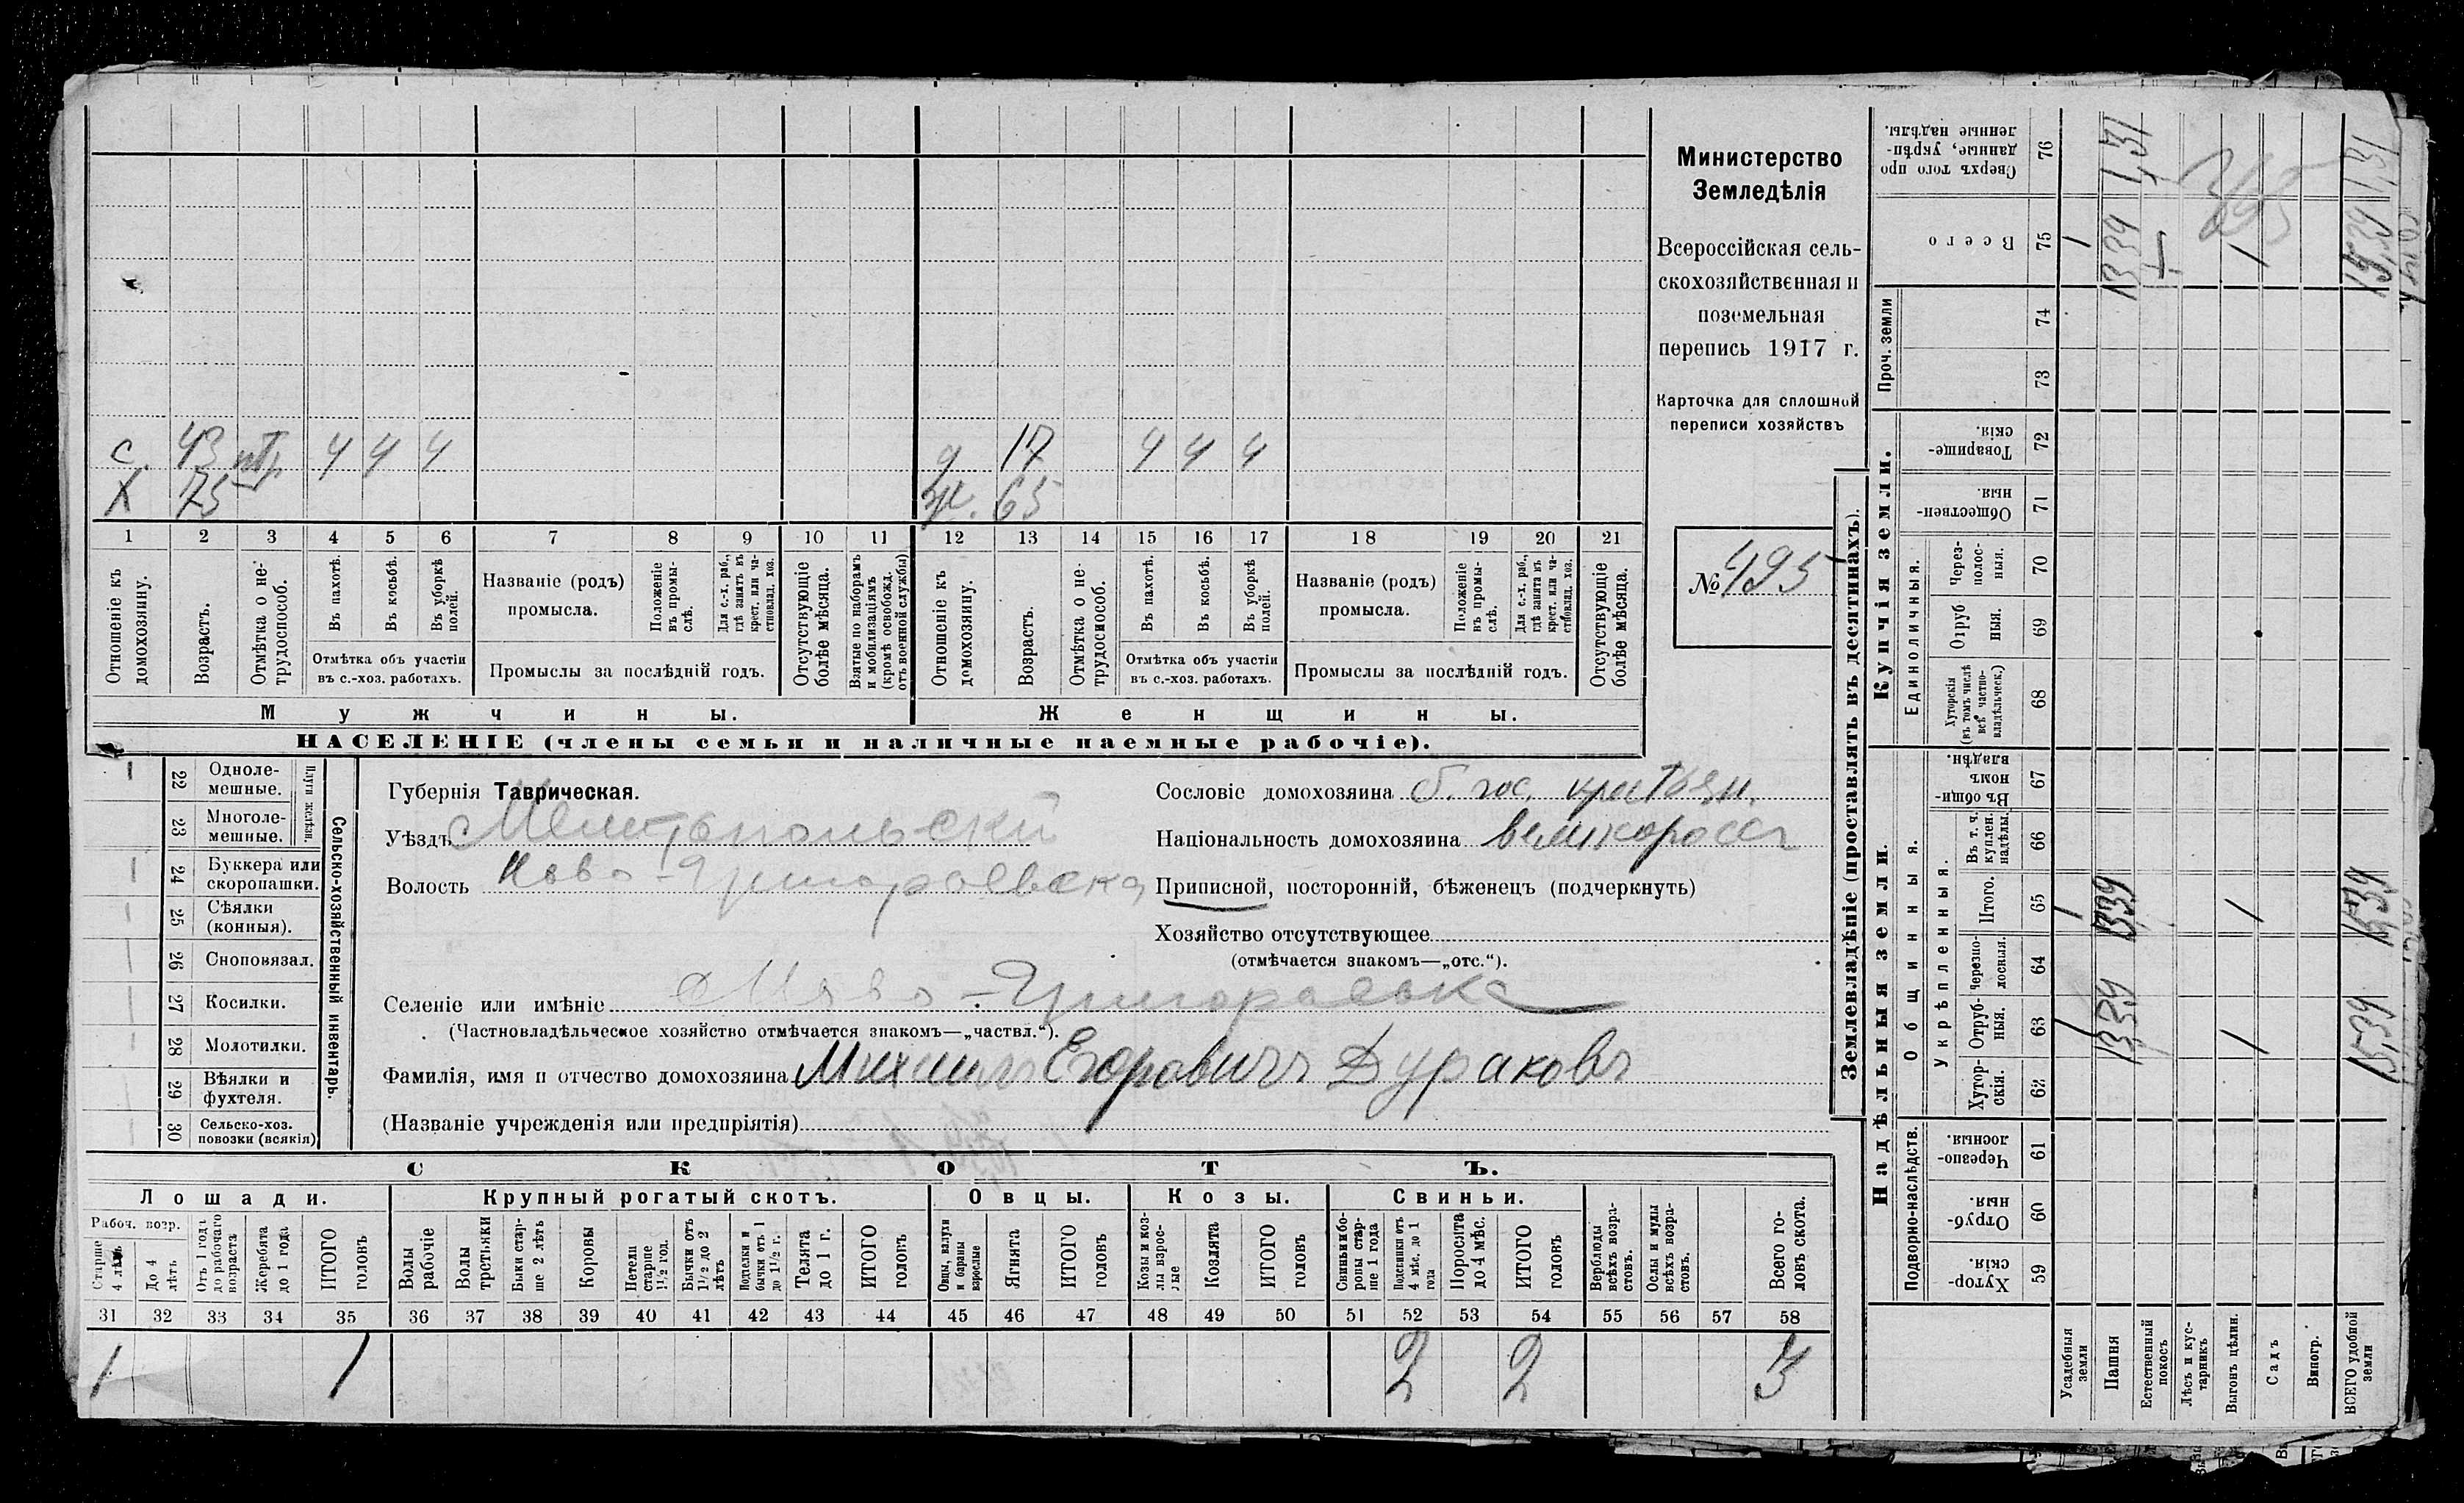 с. 43 4 4 4 д 17 4 4 4
Х 75 ж. 65
1 2 3 4 5 6 7 8 9 10 11 12 13 14 15 16 17 18 19 20 21
Отношеніе къ домохозяину.
Возрастъ.
Отмѣтка о не-трудоспособ.
Въ пахотѣ.
Въ косьбѣ.
Въ уборкѣ полей.
Отмѣтка объ участіи
въ с.-хоз. работахъ.
Названіе (родъ)
промысла.
Положеніе въ промы-слѣ.
Для с.-х. раб., гдѣ занятъ въ крест. или ча-стновлад. хоз.
Промыслы за послѣдній годъ.
Отсутствующіе болѣе мѣсяца.
Взятые по наборамъ и мобилизаціямъ (кромѣ освобожд. отъ военной службы)
Отношеніе къ домохозяину.
Возрастъ.
Отмѣтка о не-трудоспособ.
Въ пахотѣ.
Въ косьбѣ.
Въ уборкѣ полей.
Отмѣтка объ участіи
въ с.-хоз. работахъ.
Названіе (родъ)
промысла.
Положеніе въ промы-слѣ.
Для с.-х. раб., гдѣ занята въ крест. или ча-стновлад. хоз.
Промыслы за послѣдній годъ.
Отсутствующіе болѣе мѣсяца.
Мужчины.
Женщины.
НАСЕЛЕНІЕ (члены семьи и наличные наемные рабочіе).
Министерство
Земледѣлія
Всероссійская сель-
скохозяйственная и
поземельная
перепись 1917 г.
Карточка для сплошной
переписи хозяйствъ
№ 495
1 22 Одноле-мешные.
23 Многоле-мешные.
Плуги желѣзн.
1 24 Буккера или скоропашки.
25 Сѣялки (конныя).
26 Сноповязал.
27 Косилки.
28 Молотилки.
29 Вѣялки и фухтеля.
30 Сельско-хоз. повозки (всякія)
Сельско-хозяйственный инвентарь.
Губернія Таврическая.
Уѣздъ Мелитопольскій
Волость Ново-Григорьевска
Селеніе или имѣніе Ново-Григорьевка
(Частновладѣльческое хозяйство отмѣчается знакомъ—„частвл.“).
Фамилія, имя и отчество домохозяина Михаилъ Егоровичъ Дураковъ
(Названіе учрежденія или предпріятія)
Сословіе домохозяина б. гос. крестьян.
Національность домохозяина великороссъ
Приписной, посторонній, бѣженецъ (подчеркнуть)
Хозяйство отсутствующее
(отмѣчается знакомъ—„отс.“).
СКОТЪ.
Лошади. Крупный рогатый скотъ. Овцы. Козы. Свиньи.
Рабоч. возр.
Старше 4 лѣтъ
До 4 лѣтъ
Отъ 1 года до рабочаго возраста
Жеребята до 1 года
ИТОГО головъ
Волы рабочіе
Волы третьяки
Быки стар-ше 2 лѣтъ
Коровы
Нетели старше 1½ год.
Бычки отъ 1½ до 2 лѣтъ
Подтелки и бычки отъ 1 до 1½ г.
Телята до 1 г.
ИТОГО головъ
Овцы, валухи и бараны взрослые
Ягнята
ИТОГО головъ
Козы и коз-лы взрос-лые
Козлята
ИТОГО головъ
Свиньи и бо-ровы стар-ше 1 года
Подсвинки отъ 4 мѣс. до 1 года
Поросята до 4 мѣс.
ИТОГО головъ
Верблюды всѣхъ возра-стовъ.
Ослы и мулы всѣхъ возра-стовъ.
Всего го-ловъ скота.
31 32 33 34 35 36 37 38 39 40 41 42 43 44 45 46 47 48 49 50 51 52 53 54 55 56 57 58
1 1 2 2 3
Землевладѣніе (проставлять въ десятинахъ).
Купчія земли.
Надѣльныя земли.
Проч. земли
Единоличныя.
Общинныя.
Укрѣпленныя.
Подворно-наслѣдств.
Сверхъ того про данные, укрѣп-ленные надѣлы. 76 1,31 1,31
Всего 75 1 1339 1 1539
74
73
Товарище-скія. 72
Обществен-ныя. 71
Через-полос-ныя. 70
Отруб ныя. 69
Хуторскія (въ томъ числѣ всѣ частно-владѣльческ.) 68
Въ общи-номъ владѣн. 67
Въ т. ч. куплен. надѣлы. 66
Итого. 65 1 1339 1 1539
Черезпо-лосныя. 64
Отруб-ныя. 63 1 1339 1 1539
Хутор-скія. 62
Черезпо-лосныя. 61
Отруб-ныя. 60
Хутор-скія. 59
Усадебныя земли
Пашня
Естественный покосъ
Лѣсъ и кус-тарникъ
Выгонъ цѣлин.
Садъ
Виногр.
ВСЕГО удобной земли